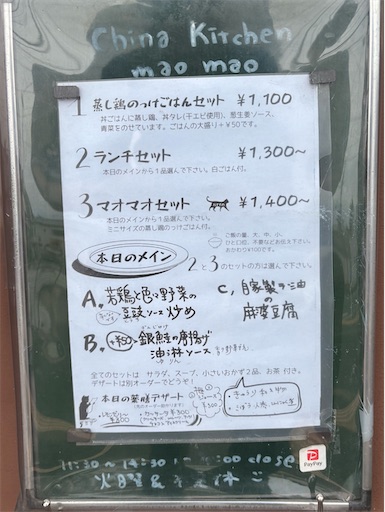 China Kitchen
mao mao
1 蒸し鶏のっけごはんセット ¥1,100
丼ごはんに蒸し鶏、丼タレ(干エビ使用)、葱生姜ソース、
青菜をのせています。ごはんの大盛り+¥50です。
2 ランチセット ¥1,300~
本日のメインから1品選んで下さい。白ごはん付。
3 マオマオセット ¥1,400~
本日のメインから1品選んで下さい。
ミニサイズの蒸し鶏のっけごはん付。
ご飯の量、大、中、小、
ひと口程、不要などお伝え下さい。
おかわり¥100です。
本日のメイン
2と3のセットの方は選んで下さい。
A. 若鶏と色々野菜の
豆豉ソース炒め
B. +¥50 銀鮭の唐揚げ
油淋ソース
C. 自家製ラー油
の
麻婆豆腐
全てのセットは サラダ、スープ、小さいおかず2品、お茶 付き。
デザートは別オーダーでどうぞ!
本日の薬膳デザート
¥300
¥300
11:30~14:30
close
火曜&
PayPay